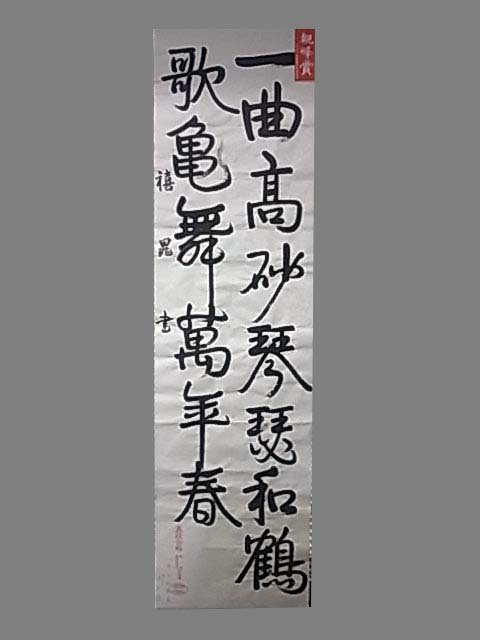 一曲高砂琴瑟和鶴
歌亀舞萬年春
禧昆書
観峰賞